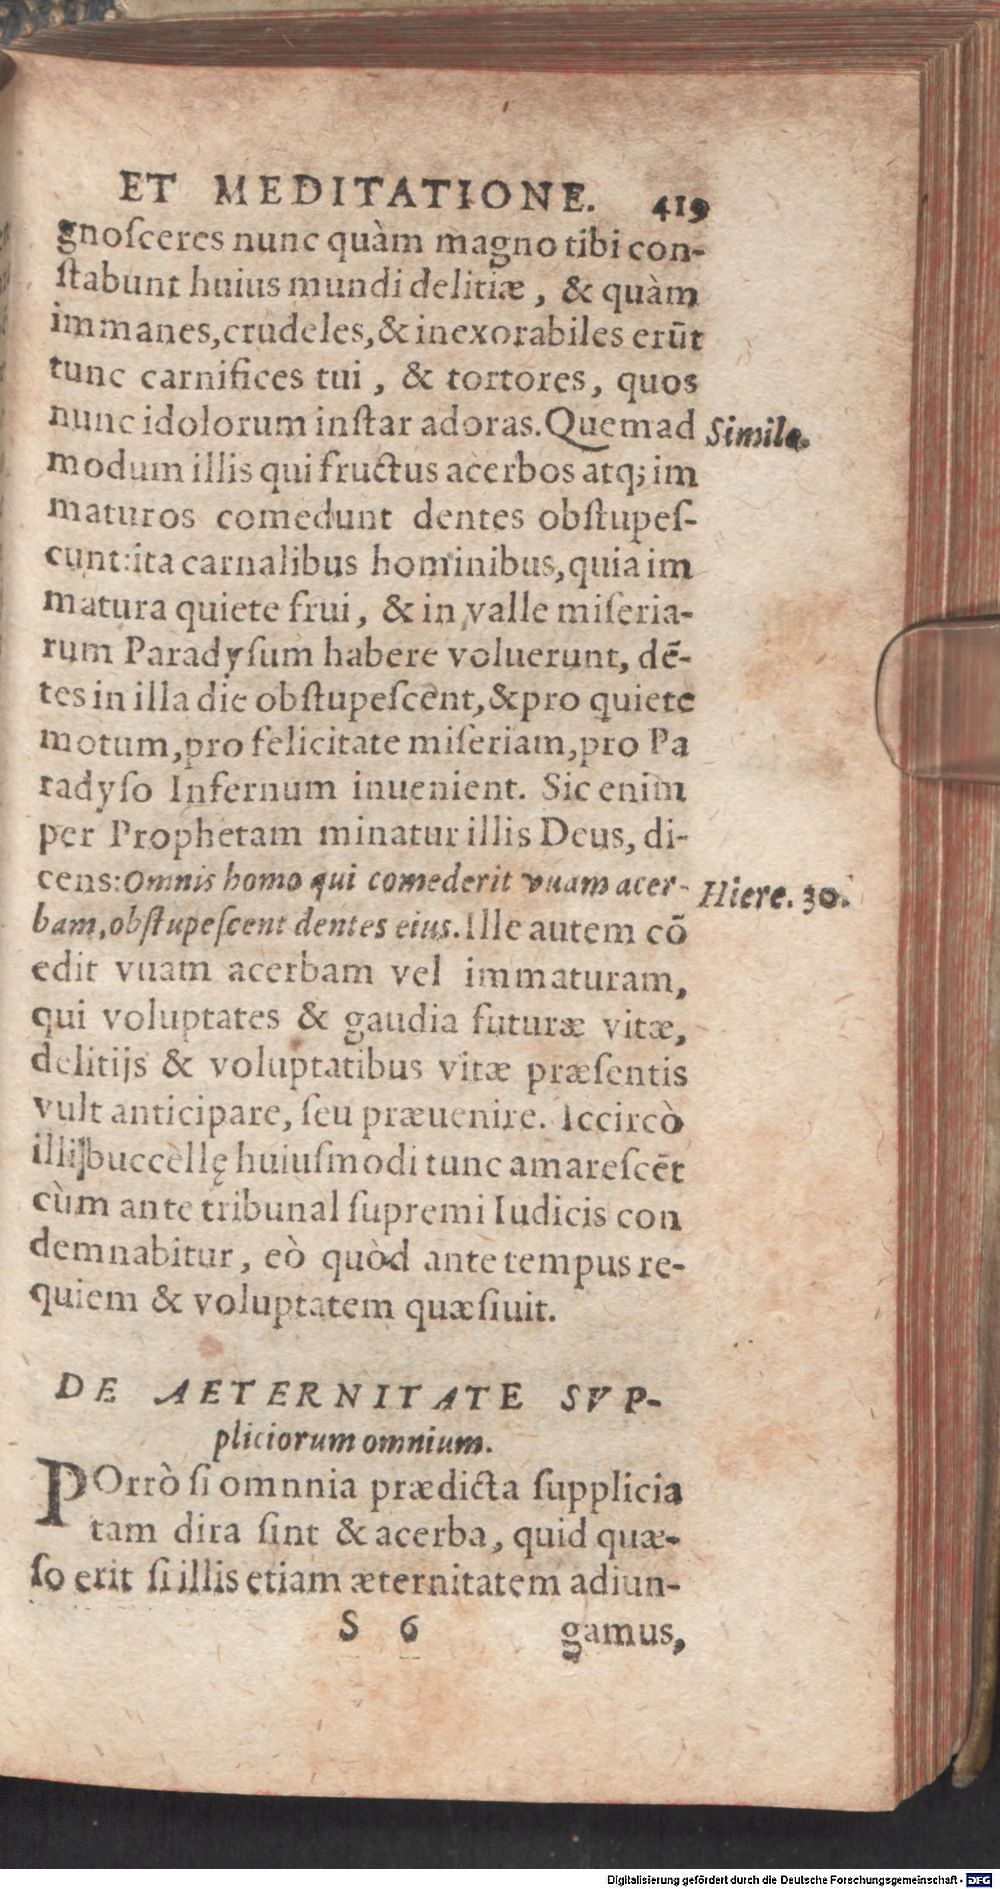 ET MEDITATIONE. 419
gnoſceres nunc quàm magno tibi con-
ſtabunt huius mundi delitiæ, & quàm
immanes, crudeles, & inexorabiles erūt
tunc carnifices tui, & tortores, quos
nunc idolorum inſtar adoras. Quemad
Simile.
modum illis qui fructus acerbos atq; im
maturos comedunt dentes obſtupeſ-
cunt: ita carnalibus hominibus, quia im
matura quiete frui, & in valle miſeria-
rum Paradyſum habere voluerunt, dē-
tes in illa die obſtupeſcent, & pro quiete
motum, pro felicitate miſeriam, pro Pa
radyſo Infernum inuenient. Sic enim
per Prophetam minatur illis Deus, di-
cens: Omnis homo qui comederit vuam acer-
Hiere. 30.
bam, obſtupeſcent dentes eius. Ille autem cō
edit vuam acerbam vel immaturam,
qui voluptates & gaudia futuræ vitæ,
delitijs & voluptatibus vitæ præſentis
vult anticipare, ſeu præuenire. Iccircò
illi buccellę huiuſmodi tunc amareſcēt
cùm ante tribunal ſupremi Iudicis con
demnabitur, eò quòd ante tempus re-
quiem & voluptatem quæſiuit.
DE AETERNITATE SVP-
pliciorum omnium.
POrrò ſi omnnia prædicta ſupplicia
tam dira ſint & acerba, quid quæ-
ſo erit ſi illis etiam æternitatem adiun-
S 6 gamus,
Digitalisierung gefördert durch die Deutsche Forschungsgemeinschaft - DFG